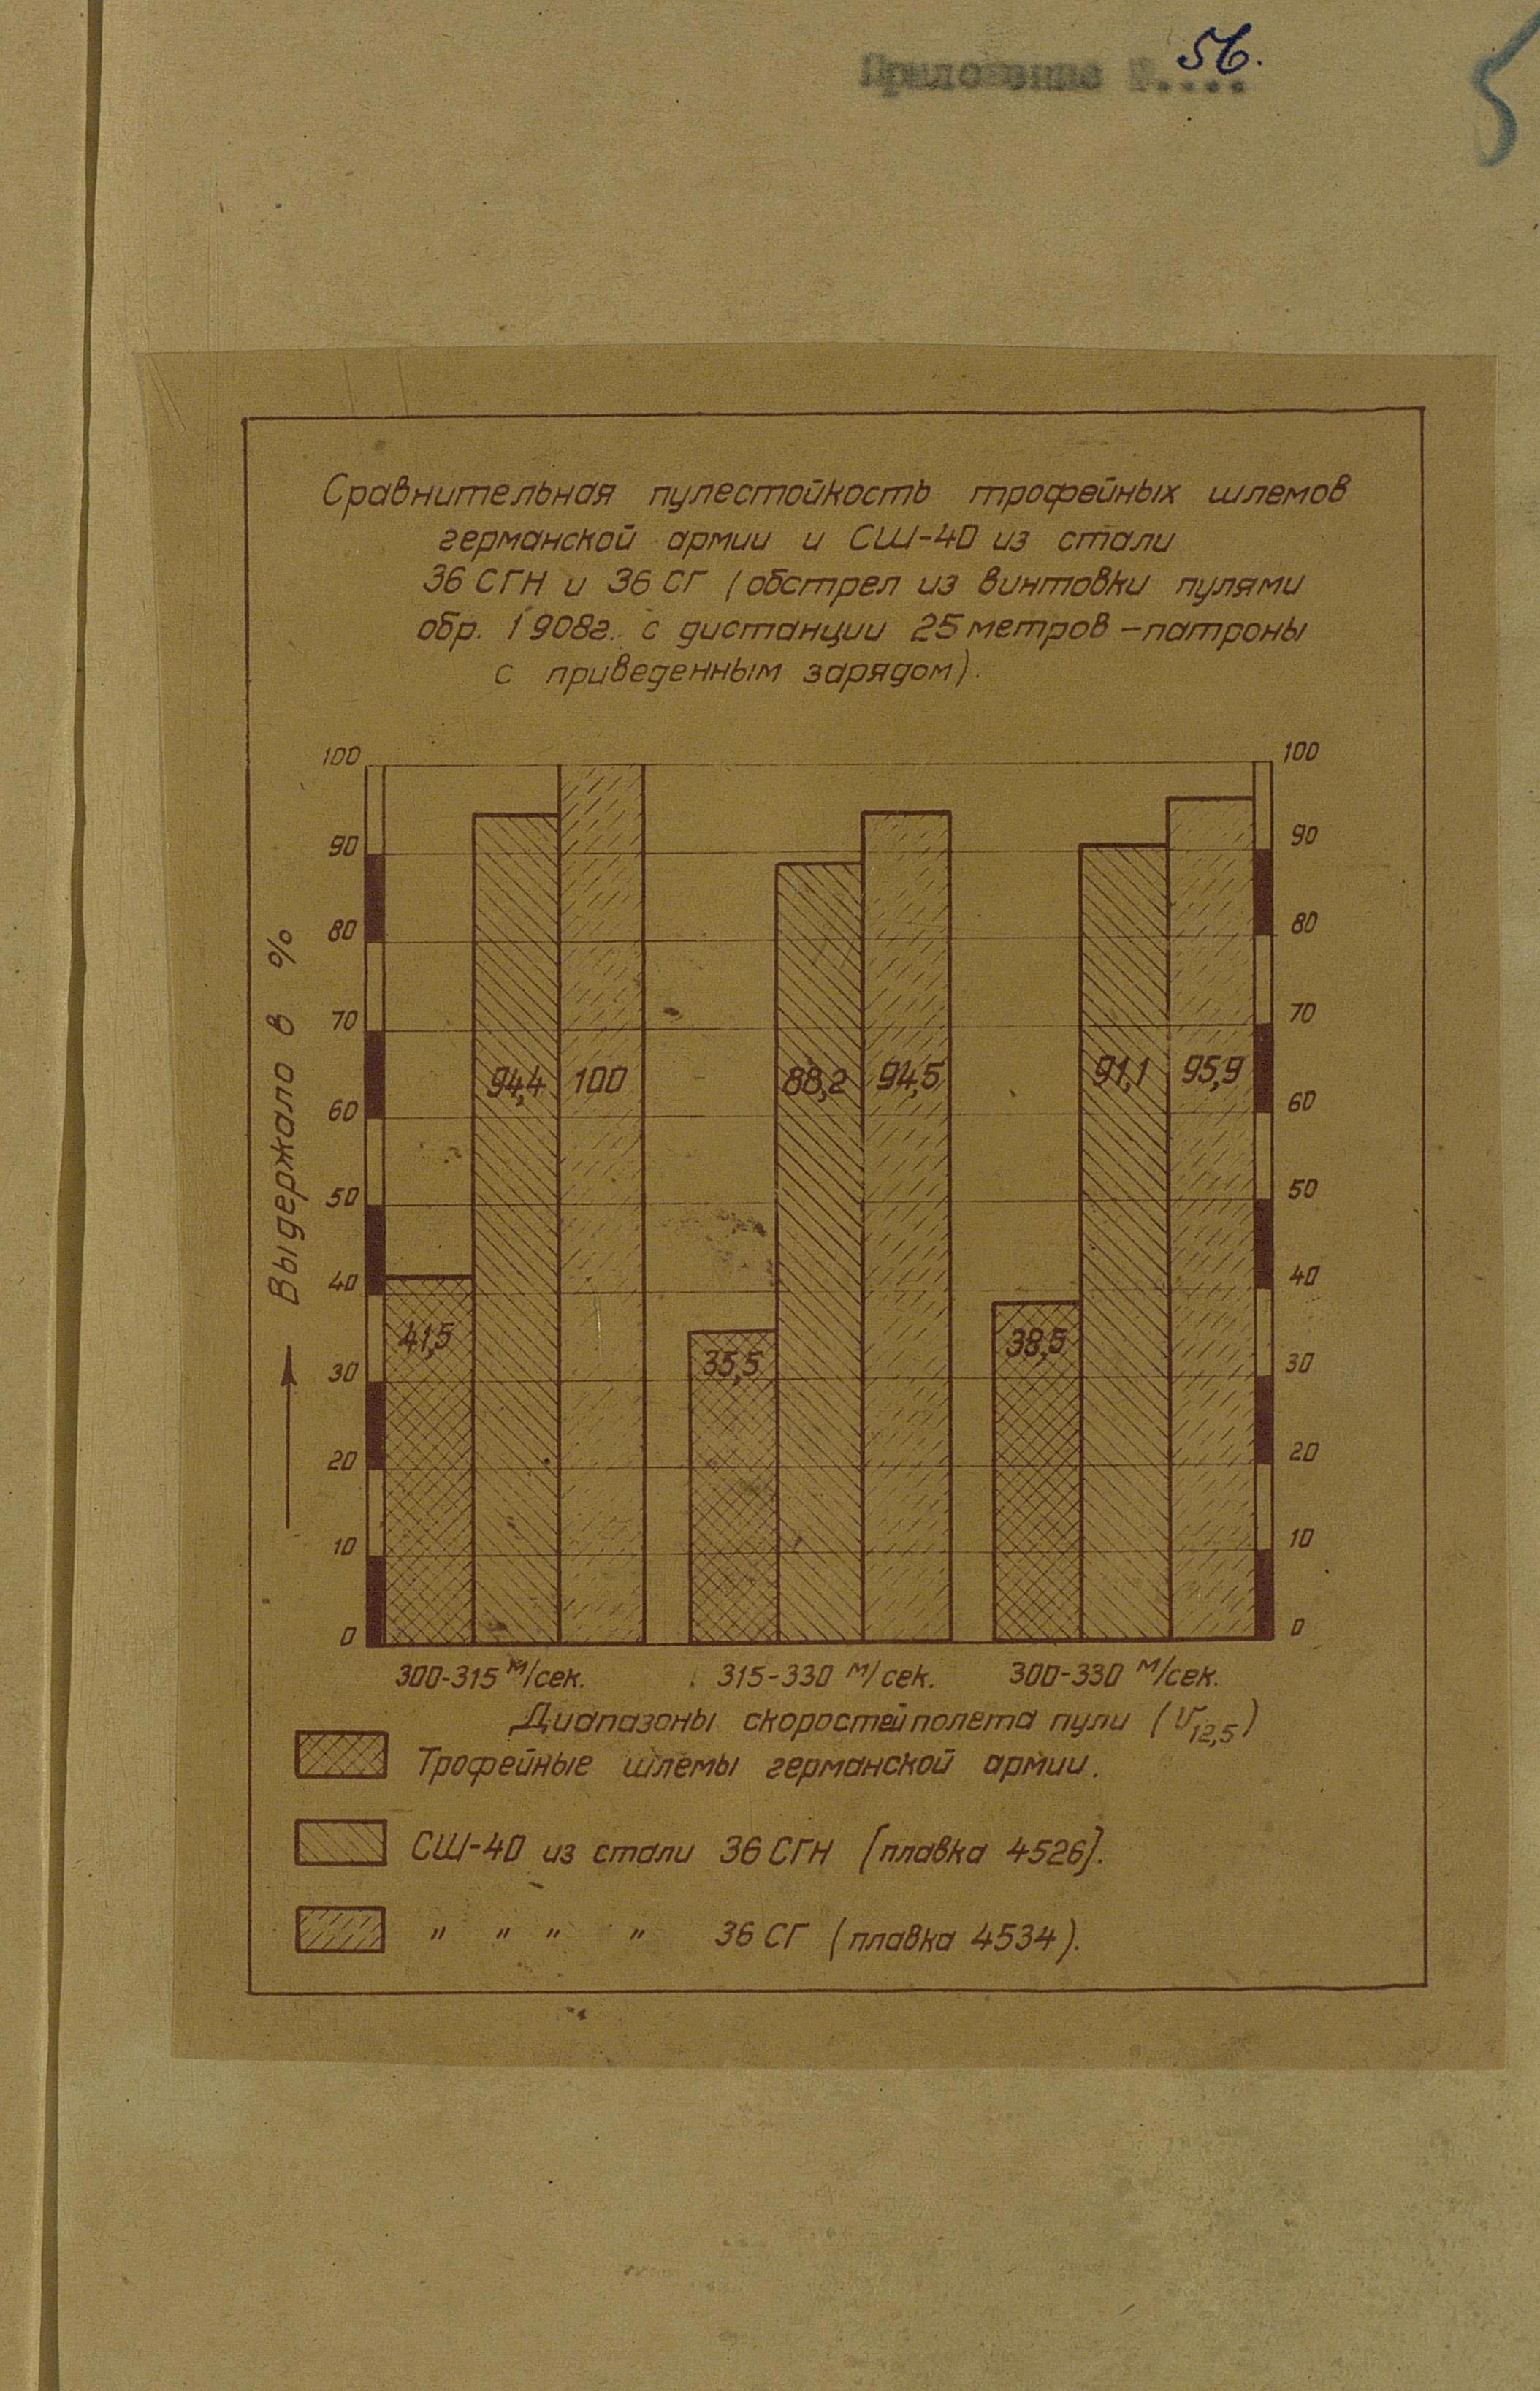 Приложение №....56.
Сравнительная пулестойкость трофейных шлемов
германской армии и СШ-40 из стали
36 СГН и 36 СГ (обстрел из винтовки пулями
обр. 1908г. с дистанции 25 метров - патроны
с приведенным зарядом).
100 100
90 90
80 80
70 70
60 60
50 50
40 40
30 30
20 20
10 10
0 0
Выдержало в %
94,4 100 88,2 94,5 91,1 95,9
41,5 35,5 38,5
300-315 м/сек. 315-330 м/сек. 300-330 м/сек.
Диапазоны скоростей полета пули (V12,5)
Трофейные шлемы германской армии.
СШ-40 из стали 36 СГН [плавка 4526].
" " " " 36 СГ (плавка 4534).